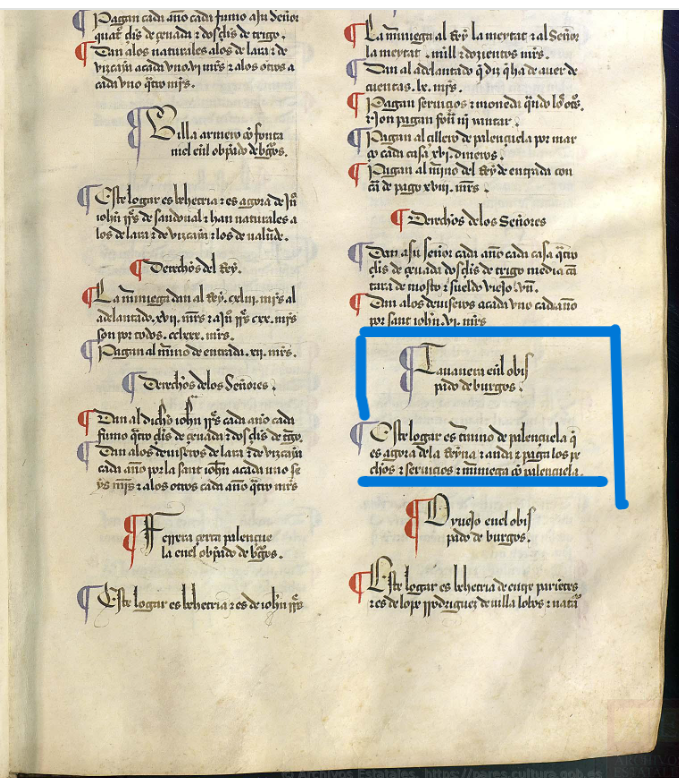 Pagan cada año cada fumo a su señor
quat̃ çls de çeuada z dos çls de trigo.
Dan a los naturales a los de lara z de
vizcaya a cada vno. vj mr̃s z a los otros a
cada vno q̃tro mr̃s.
Villa armero cõ fonta
en el obp̃ado de b̃gos.
Este logar es behetria z es agora de
iohñ rr̃s de sandoual z han naturales a
los de lara z de vizcaya z los de
Derechos del Rey.
La martiniega dan al Rey. mr̃s al
adelantado. xvij. mr̃s z a rr̃s cxx. mr̃s
son por todos. cclxxx. mr̃s.
Pagan al m̃ino de entrada. xij. mr̃s.
Derechos de los Señores.
Dan al dicho iohñ rr̃s cada año cada
fumo q̃tro çls de çeuada z dos çls de t̃go.
Dan a los deuiseros de lara z de vizcaya
cada año por la sant iohñ a cada vno se
ys mr̃s z a los otros cada año q̃tro mr̃s
Ferrera çerca palençue
la en el obp̃ado de b̃gos.
Este logar es behetria z es de iohñ rr̃s
La al Rey la meytat z al Señor
la meytat. mill z dozientos mr̃s.
Dan al adelantado q̃ diz q̃ ha de auer de
cuentas. lx. mr̃s.
Pagan seruiçios z moneda q̃ndo los otros.
z non pagan yantar.
Pagan al çillero de palençuela por mar
ço cada casa xvj. dineros.
Pagan al m̃ino del Rey de entrada con
de pago xviij. mr̃s.
Derechos de los Señores
Dan a su señor cada año cada casa q̃tro
çls de çeuada dos çls de trigo media cã
tara de mosto z sueldo viejo.
Dan a los deuiseros a cada vno cada año
por sant iohñ. vj. mr̃s
Tauanera en el obis
pado de burgos.
Este logar es t̃mino de palençuela q̃
es agora de la Reyna z anda z paga los pe
chos z seruiçios z cõ palençuela.
Oruejo en el obis
pado de burgos.
Este logar es behetria de entre parientes
z es de lope rrodriguez de villa lobos z